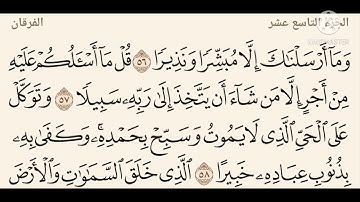 الجزء التاسع عشر
الفرقان
وَمَآ أَرْسَلْنَٰكَ إِلَّا مُبَشِّرًا وَنَذِيرًا ٥٦ قُلْ مَآ أَسْـَٔلُكُمْ عَلَيْهِ
مِنْ أَجْرٍ إِلَّا مَن شَآءَ أَن يَتَّخِذَ إِلَىٰ رَبِّهِۦ سَبِيلًا ٥٧ وَتَوَكَّلْ
عَلَى ٱلْحَىِّ ٱلَّذِى لَا يَمُوتُ وَسَبِّحْ بِحَمْدِهِۦ ۚ وَكَفَىٰ بِهِۦ
بِذُنُوبِ عِبَادِهِۦ خَبِيرًا ٥٨ ٱلَّذِى خَلَقَ ٱلسَّمَٰوَٰتِ وَٱلْأَرْضَ